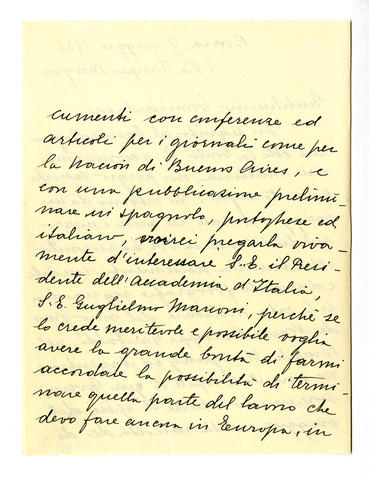 cumenti con conferenze ed
articoli per i giornali come per
la Nacion di Buenos Aires, e
con una pubblicazione prelimi-
nare in spagnolo, portoghese ed
italiano, vorrei pregarla viva-
mente d'interessare S. E. il Presi-
dente dell'Accademia d'Italia,
S. E. Guglielmo Marconi, perchè se
lo crede meritevole e possibile voglia
avere la grande bontà di farmi
accordare la possibilità di termi-
nare quella parte del lavoro che
devo fare ancora in Europa, in